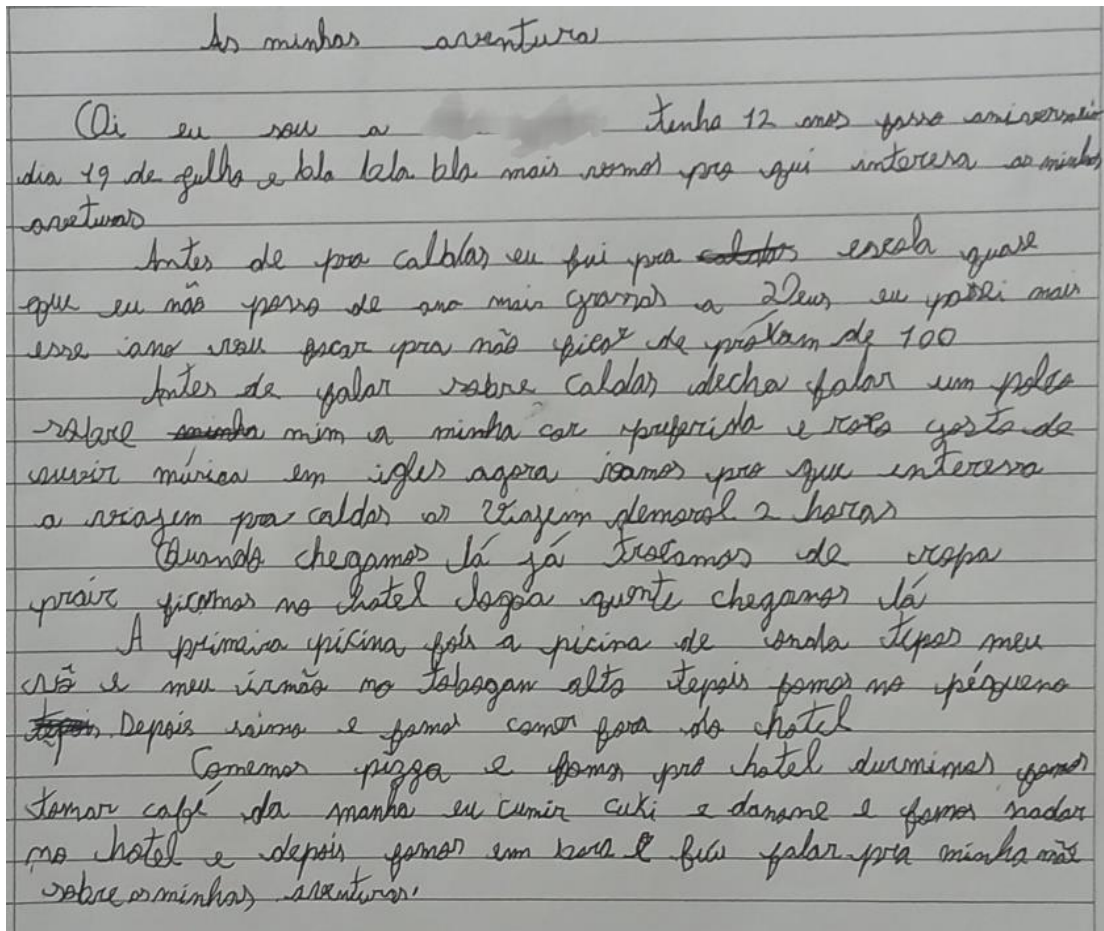 As minhas aventura
Oi eu sou a tenho 12 anos fasso aniversario
dia 19 de julho e bla bla bla mais vamos pro qui interesa as minhas
aveturas
Antes de pra calblas eu fui pra escola quase
que eu não passo de ano mais grassas a Deus eu passei mais
esse ano vou focar pra não ficar de próxam de 100
Antes de falar sobre Caldas decha falar um poco
sobre mim a minha cor preferida e roxo gosto de
ouvir música em igles agora vamos pro que interessa
a viajem pra caldas as viajem demorol 2 horas
Quando chegamos lá já trocamos de ropa
prair ficamos no hotel lagoa quente chegamos lá
A primeira picina fois a picina de onda tepos meu
vô e meu irmão no tobogan alto tepois fomos no péqueno
Depois saimo e fomos comer fora do hotel
Comemos pizza e fomos pro hotel durmimos fomos
tomar café da manha eu cumir cuki e danone e fomos nadar
no hotel e depois fomos em bora e fui falar pra minha mãe
sobre as minhas aventuras.